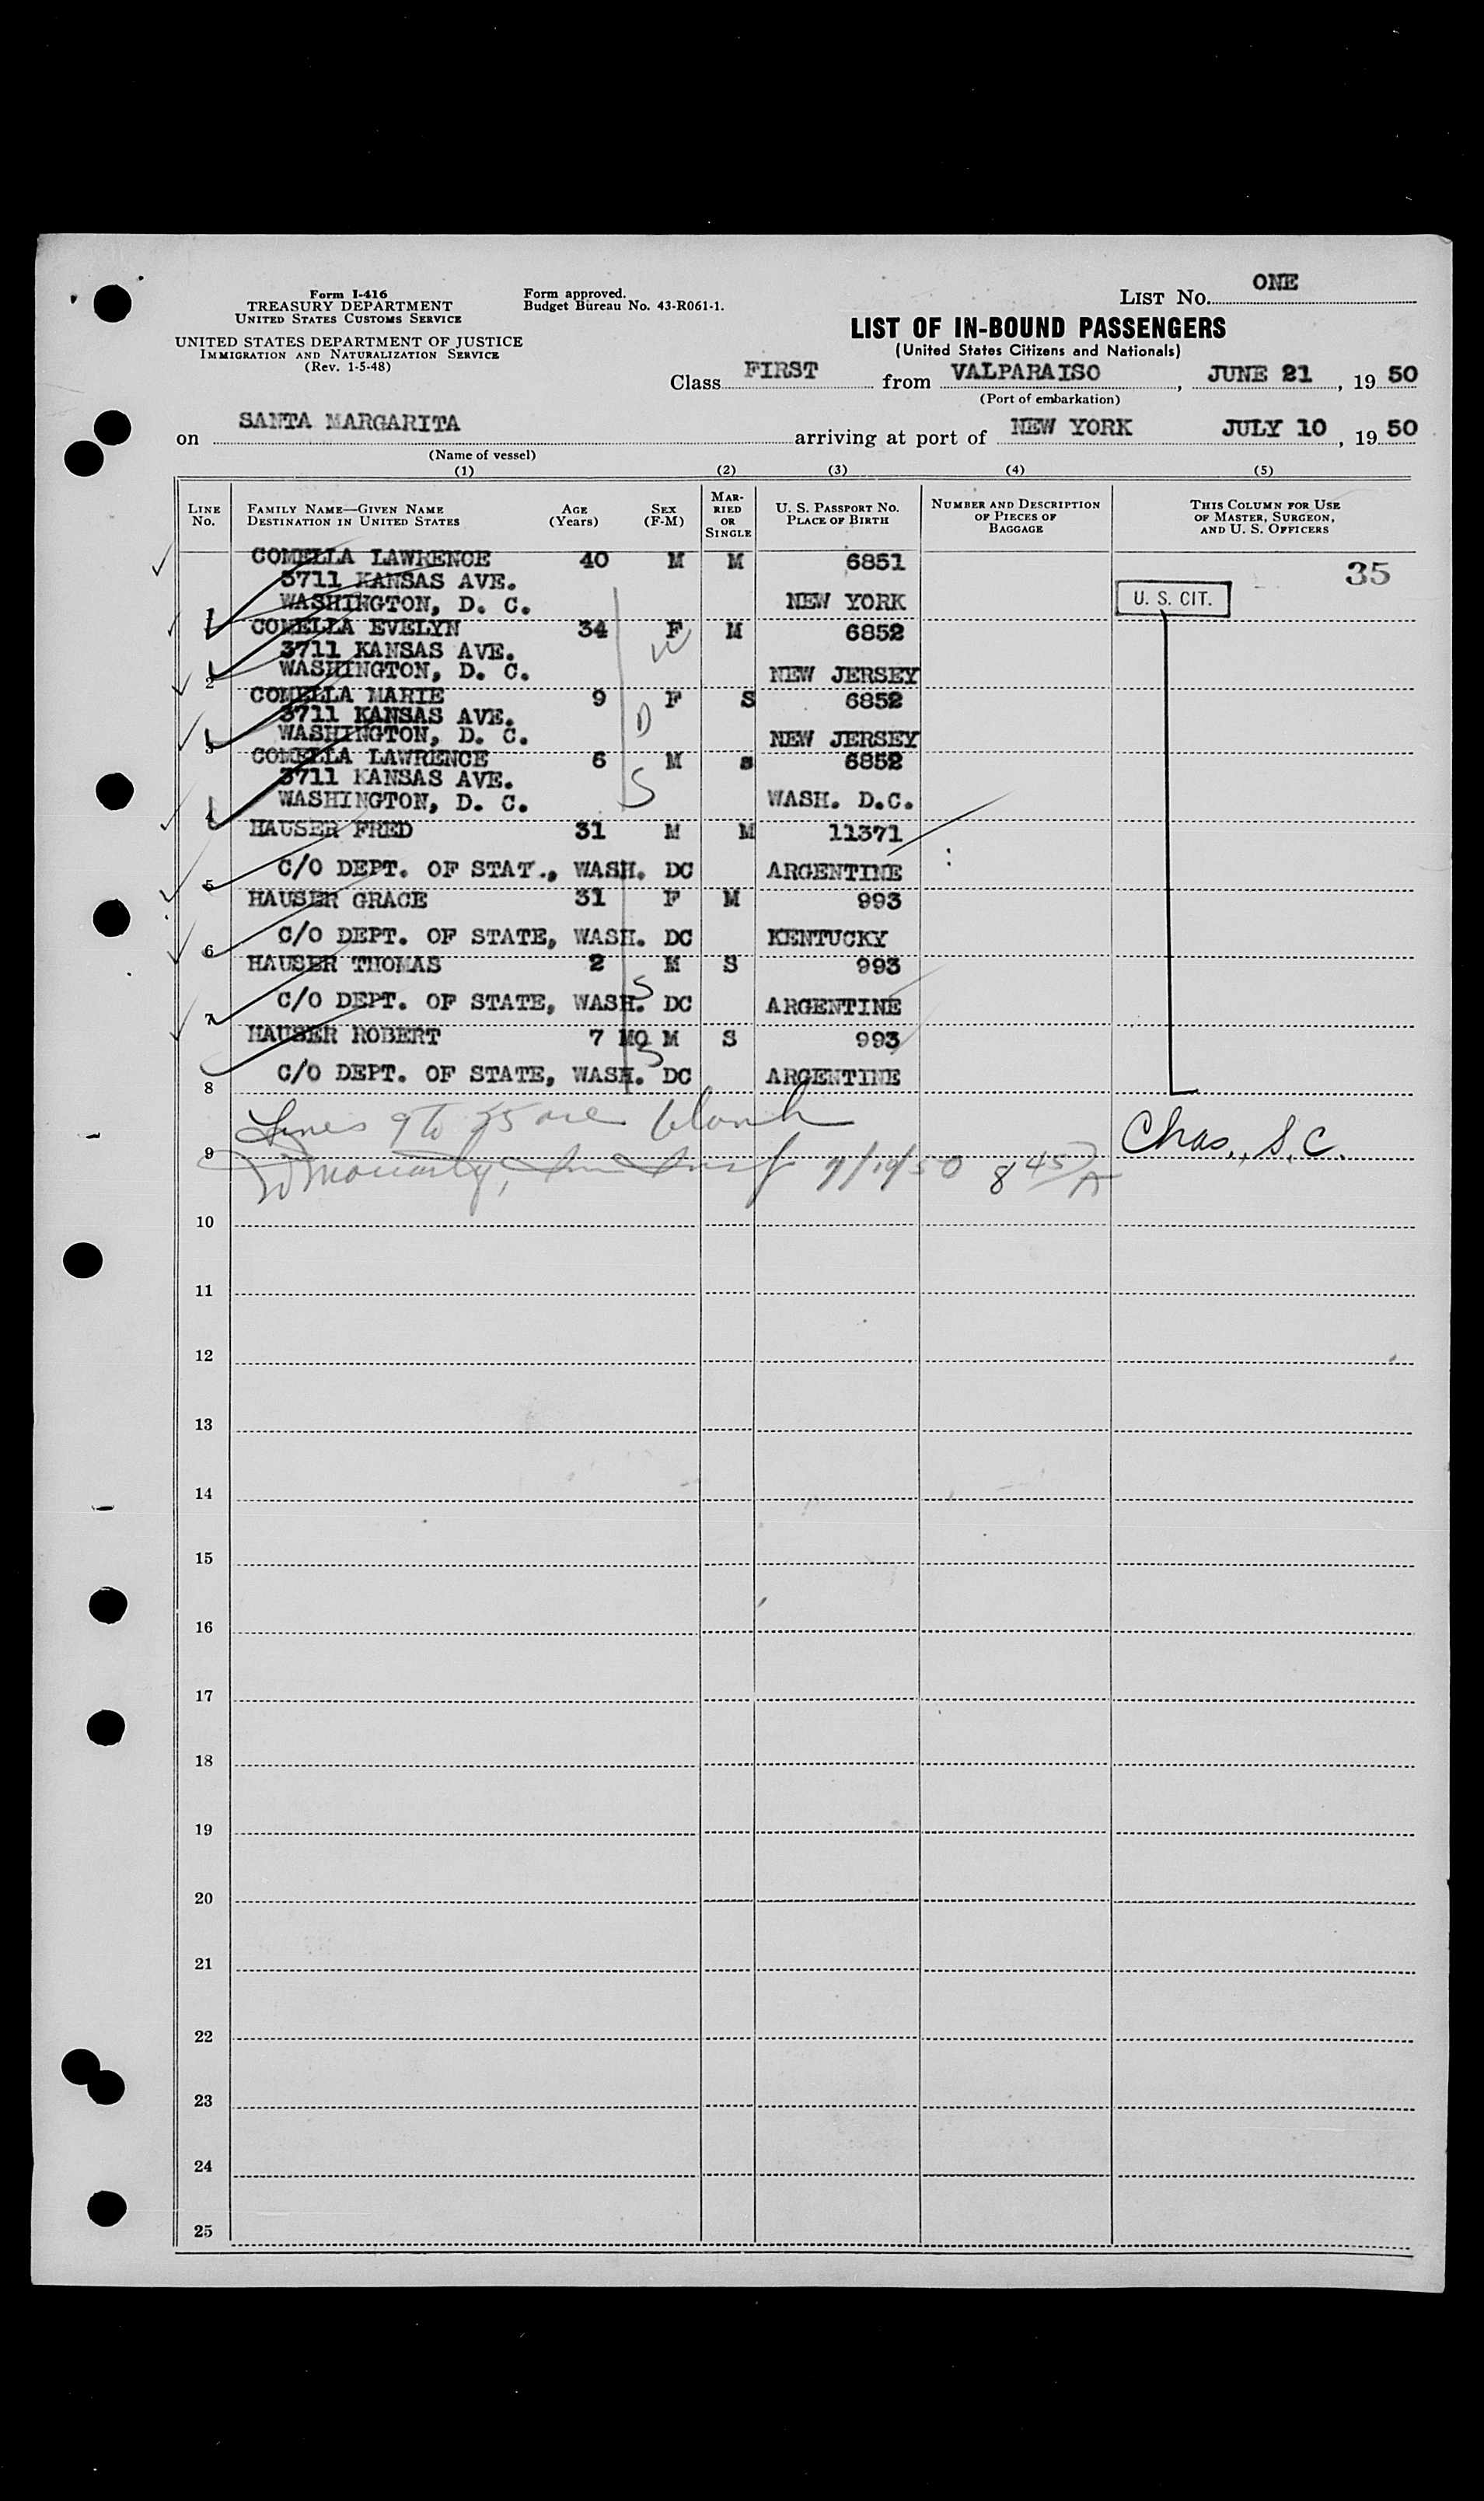 Form I-416
TREASURY DEPARTMENT
UNITED STATES CUSTOMS SERVICE
UNITED STATES DEPARTMENT OF JUSTICE
IMMIGRATION AND NATURALIZATION SERVICE
(Rev. 1-5-48)
Form approved.
Budget Bureau No. 43-R061-1.
LIST NO. ONE
LIST OF IN-BOUND PASSENGERS
(United States Citizens and Nationals)
Class FIRST from VALPARAISO, JUNE 21, 19 50
(Port of embarkation)
on SANTA MARGARITA arriving at port of NEW YORK JULY 10, 19 50
(Name of vessel)
(1) (2) (3) (4) (5)
LINE NO. FAMILY NAME—GIVEN NAME DESTINATION IN UNITED STATES AGE (Years) SEX (F-M) MARRIED OR SINGLE U. S. PASSPORT NO. PLACE OF BIRTH NUMBER AND DESCRIPTION OF PIECES OF BAGGAGE THIS COLUMN FOR USE OF MASTER, SURGEON, AND U. S. OFFICERS
COMELLA LAWRENCE 40 M M 6851 35
3711 KANSAS AVE.
1 WASHINGTON, D. C. NEW YORK U. S. CIT.
COMELLA EVELYN 34 F M 6852
3711 KANSAS AVE. W
2 WASHINGTON, D. C. NEW JERSEY
COMELLA MARIE 9 F S 6852
3711 KANSAS AVE. D
3 WASHINGTON, D. C. NEW JERSEY
COMELLA LAWRENCE 6 M s 6852
3711 KANSAS AVE. S
4 WASHINGTON, D. C. WASH. D.C.
HAUSER FRED 31 M M 11371
5 C/O DEPT. OF STAT., WASH. DC ARGENTINE
HAUSER GRACE 31 F M 993
6 C/O DEPT. OF STATE, WASH. DC KENTUCKY
HAUSER THOMAS 2 M S 993
S
7 C/O DEPT. OF STATE, WASH. DC ARGENTINE
HAUSER ROBERT 7 MO M S 993
S
8 C/O DEPT. OF STATE, WASH. DC ARGENTINE
Lines 9 to 25 are blank Chas., S.C.
9 Moriarty, 7/10/50 8 45/A
10
11
12
13
14
15
16
17
18
19
20
21
22
23
24
25